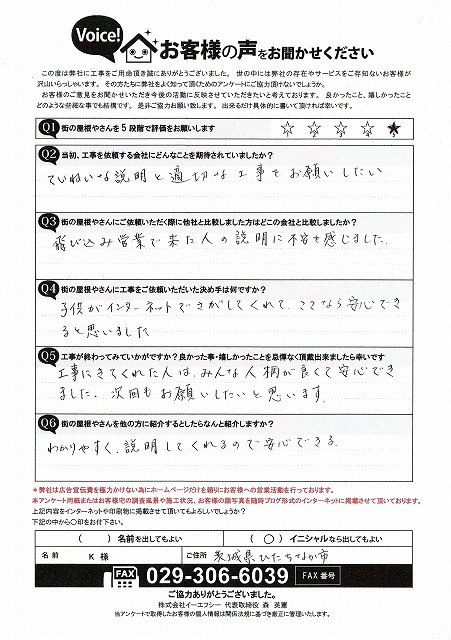 Voice!
お客様の声をお聞かせください
この度は弊社に工事をご用命頂き誠にありがとうございました。 世の中には弊社の存在やサービスをご存知ないお客様が
沢山いらっしゃいます。 その方たちに弊社をよく知って頂くためのアンケートにご協力頂けないでしょうか。
お客様のご意見をお聞かせいただき今後の活動に反映させていただきたいと考えております。 良かったこと、嬉しかったこと
どのような些細な事でも結構です。 是非ご協力お願い致します。 出来るだけ具体的に書いて頂ければ幸いです。
Q1 街の屋根やさんを5段階で評価をお願いします
☆1 ☆2 ☆3 ☆4 ★5
Q2 当初、工事を依頼する会社にどんなことを期待されていましたか?
ていねいな説明と適切な工事をお願いしたい
Q3 街の屋根やさんにご依頼いただく際に他社と比較しました方はどこの会社と比較しましたか?
飛び込み営業で来た人の説明に不安を感じました.
Q4 街の屋根やさんに工事をご依頼いただいた決め手は何ですか?
子供がインターネットでさがしてくれて、ここなら安心でき
ると思いました
Q5 工事が終わってみていかがですか?良かった事・嬉しかったことを忌憚なく頂戴出来ましたら幸いです
工事にきてくれた人は、みんな人柄が良くて安心でき
ました. 次回もお願いしたいと思います.
Q6 街の屋根やさんを他の方に紹介するとしたらなんと紹介しますか?
わかりやすく、説明してくれるので安心できる.
*弊社は広告宣伝費を極力かけない為にホームページだけを頼りにお客様への営業活動を行っております。
本アンケート用紙またはお客様宅の調査風景や施工状況、お客様の顔写真を随時ブログ形式のインターネットに掲載させて頂いております。
上記内容をインターネットや印刷物に掲載させて頂いてもよろしいでしょうか?
下記の中から○印をお付下さい。
( ) 名前を出してもよい ( ○ ) イニシャルなら出してもよい
名前 K 様 ご住所 茨城県ひたちなか市
FAX 029-306-6039 FAX番号
ご協力ありがとうございました。
株式会社イーエフシー 代表取締役 森 英憲
当アンケートで取得したお客様の個人情報は関係法規に基づき厳正に管理いたします。